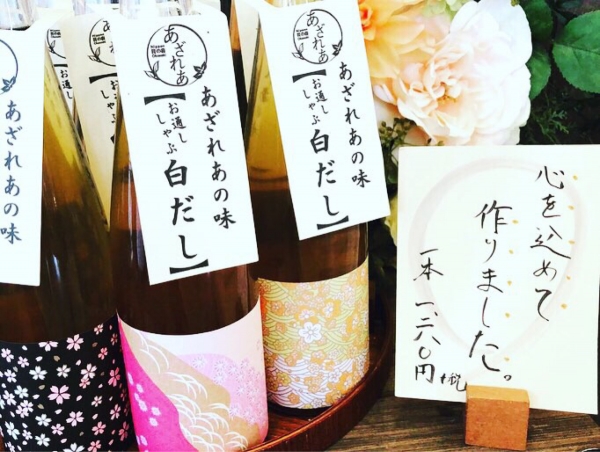 あざれあの味
あざれあ
あざれあの味
【お通し
しゃぶ
白だし】
あざれあ
あざれあの味
【お通し
しゃぶ
白だし】
心を込めて
作りました。
一本
+税